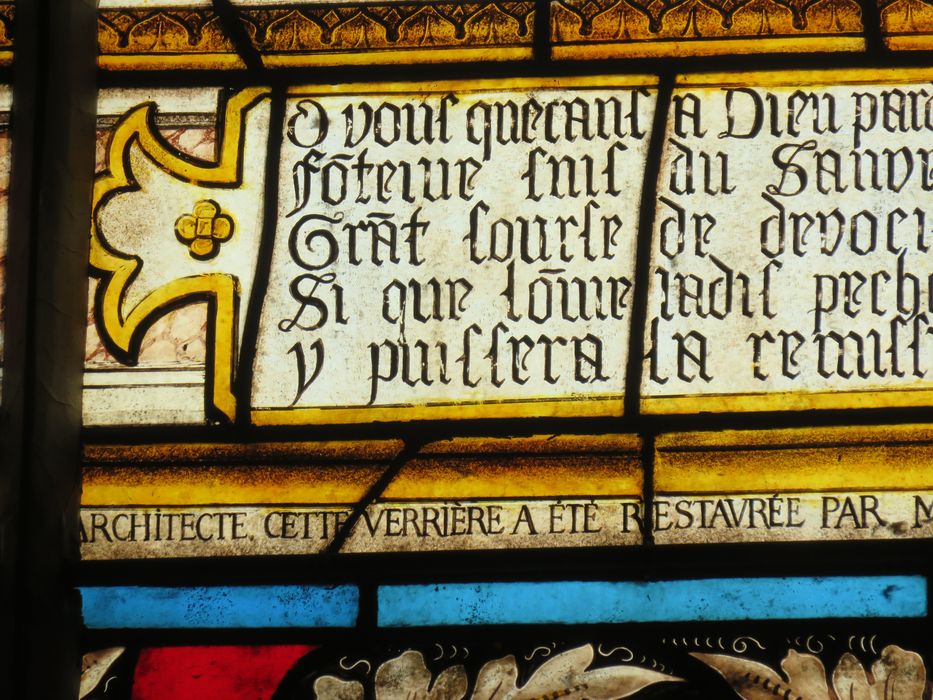 O vous quecans a Dieu pard
Fōteiue suis du Sauve
Grāt sourse de devoci
Si que lōme iadis pech
y puissera la remiss
ARCHITECTE. CETTE VERRIÈRE A ÉTÉ RESTAVRÉE PAR M